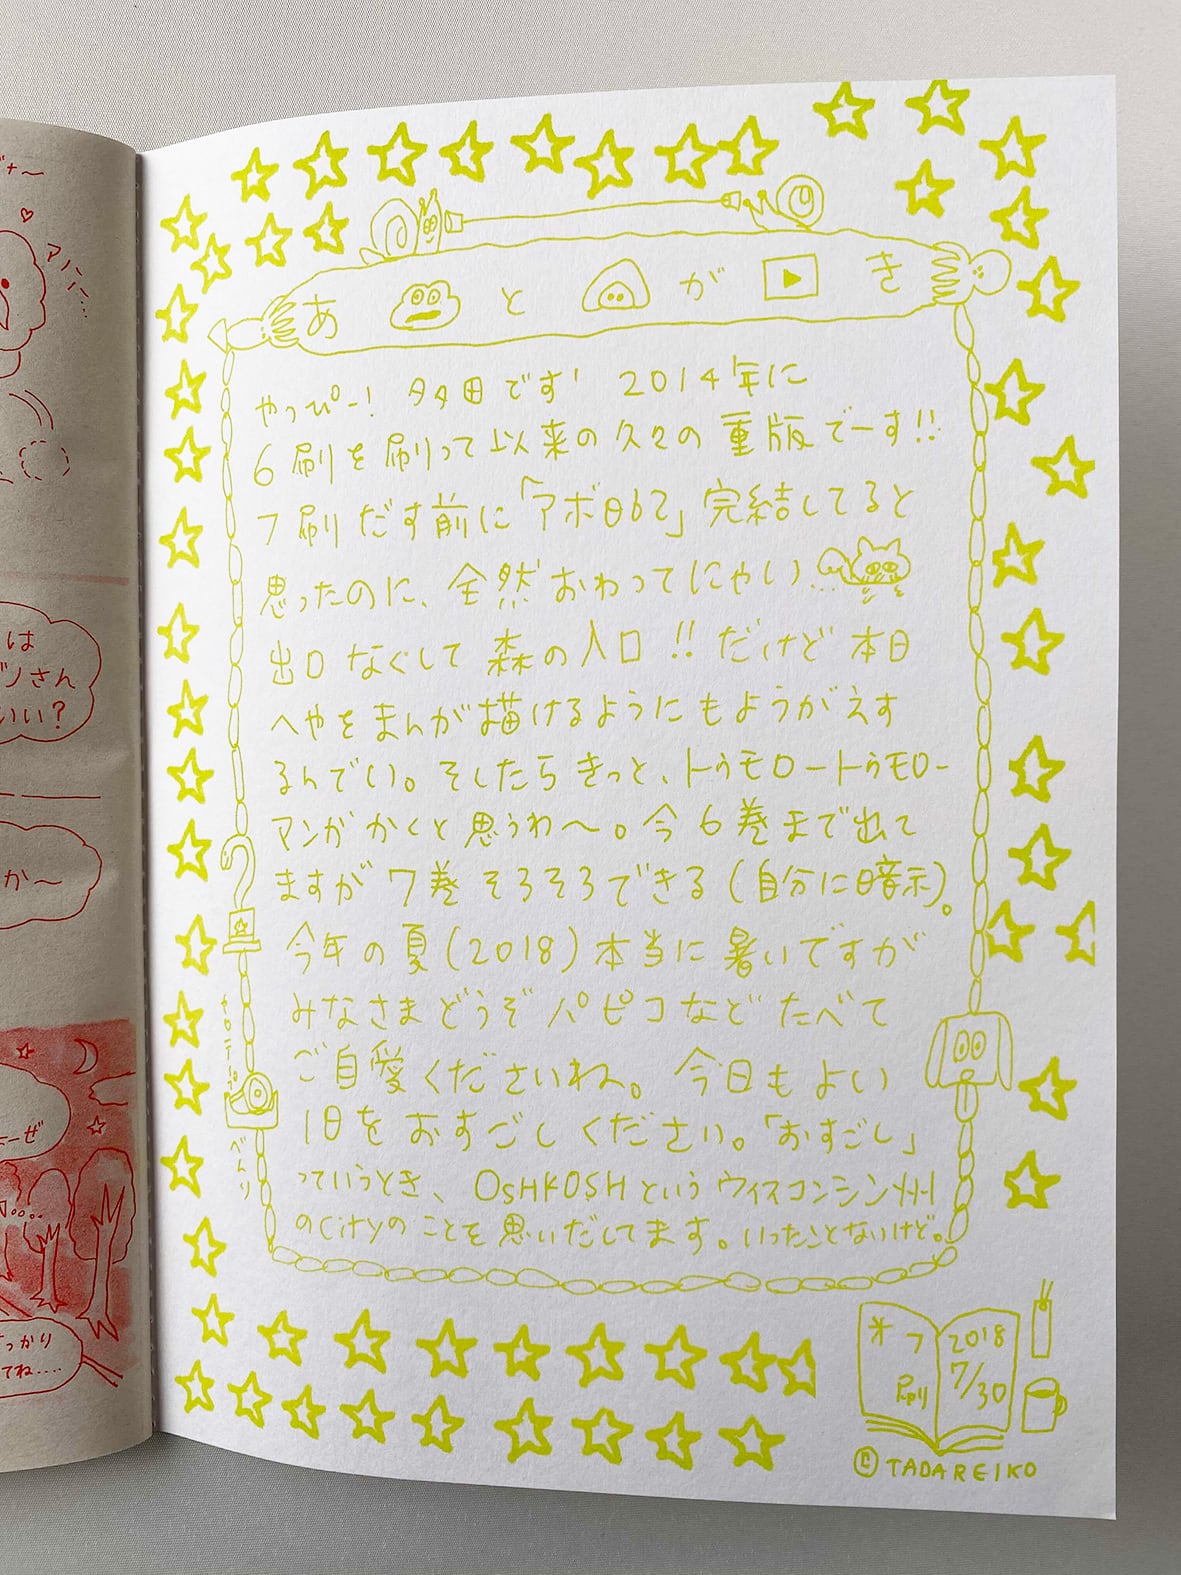 あとがき
やっぴー! タダ田です! 2014年に
6刷を刷って以来の久々の重版でーす!!
7刷だす前に「アボ日62」完結してると
思ったのに、全然おわってにゃい…
出口なくして森の入口!! だけど本日
へやをまんが描けるようにもようがえす
るんでい。そしたらきっと、トゥモロートゥモロー
マンガかくと思うわ〜。今6巻まで出て
ますが7巻そろそろできる(自分に暗示)。
今年の夏(2018)本当に暑いですが
みなさまどうぞパピコなどたべて
ご自愛くださいね。今日もよい
1日をおすごしください。「おすごし」
っていうとき、OSHKOSHというウィスコンシン州
のCityのことを思いだしてます。いったことないけど。
べんり
米7刷
2018
7/30
© TADAREIKO
アノに…
は
ゾノさん
いい?
か〜
ーぜ
さっかり
てね....